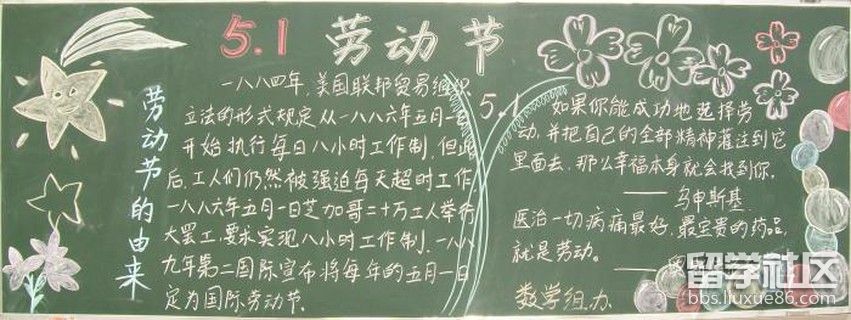 5.1 劳动节
劳动节的由来
一八八四年,美国联邦贸易组织
立法的形式规定从一八八六年五月一日
开始执行每日八小时工作制,但此
后,工人们仍然被强迫每天超时工作
一八八六年五月一日芝加哥二十万工人举行
大罢工,要求实现八小时工作制.一八八
九年第二国际宣布将每年的五月一日
定为国际劳动节.
5.1
如果你能成功地选择劳
动,并把自己的全部精神灌注到它
里面去,那么幸福本身就会找到你。
——乌申斯基
医治一切病痛最好,最宝贵的药品,
就是劳动。
数学组.办
留学社区
bbs.liuxue86.com